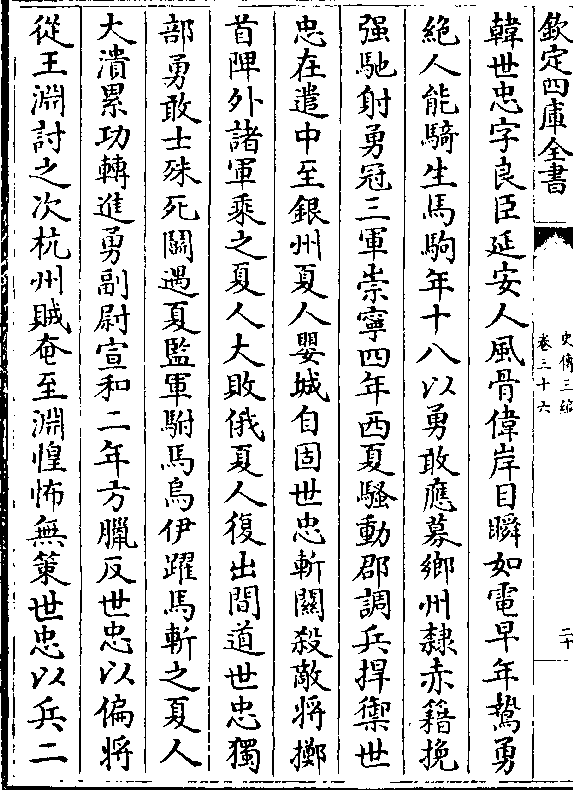 欽定四庫全書
史傳三編
卷三十六
二十
韓世忠字良臣延安人風骨偉岸目瞬如電早年鷙勇
絶人能騎生馬駒年十八以勇敢應募鄉州隸赤籍挽
强馳射勇冠三軍崇寧四年西夏騷動郡調兵捍禦世
忠在遣中至銀州夏人嬰城自固世忠斬關殺敵將擲
首陴外諸軍乘之夏人大敗俄夏人復出間道世忠獨
部勇敢士殊死鬭遇夏監軍駙馬烏伊躍馬斬之夏人
大潰累功轉進勇副尉宣和二年方臘反世忠以偏將
從王淵討之次杭州賊奄至淵惶怖無策世忠以兵二